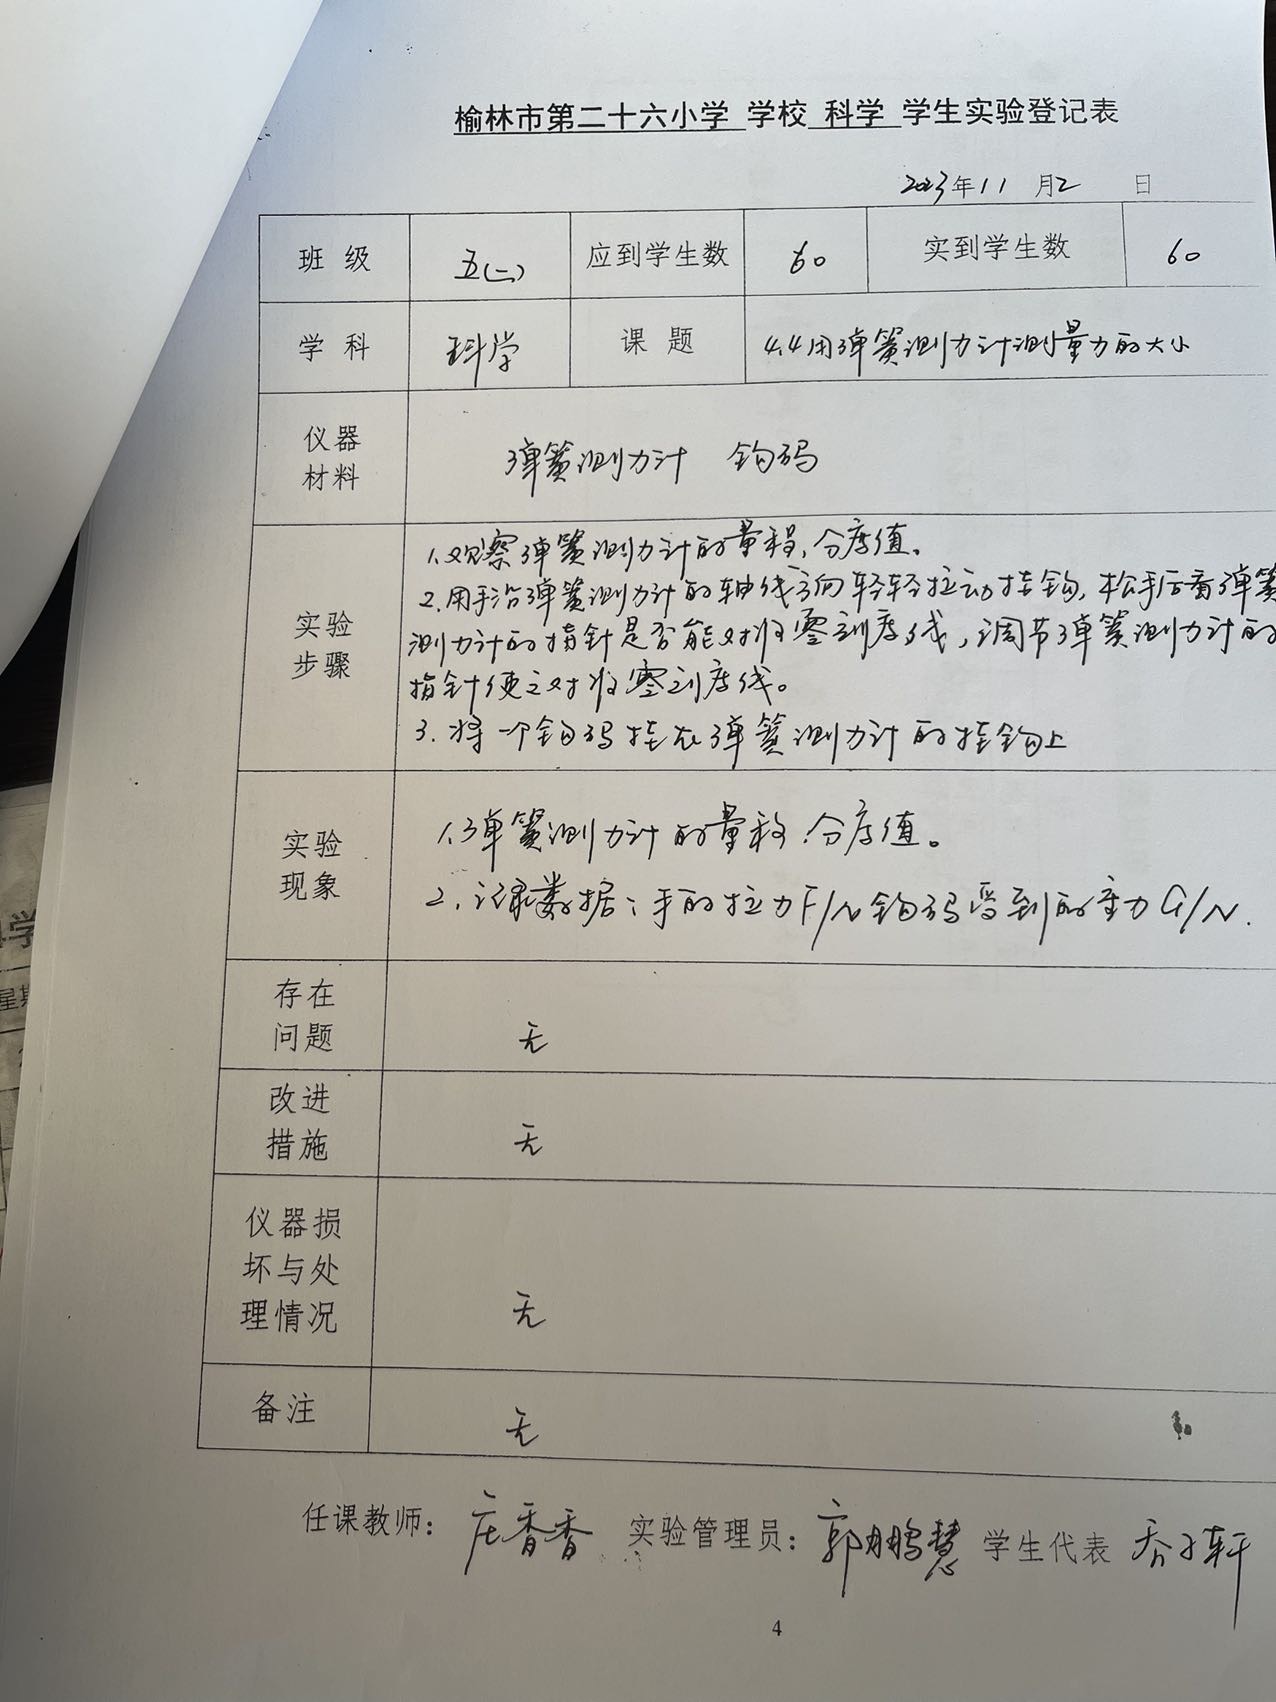 榆林市第二十六小学 学校 科学 学生实验登记表
2023年11月2日
班级 五(二) 应到学生数 60 实到学生数 60
学科 科学 课题 4.4用弹簧测力计测量力的大小
仪器
材料
弹簧测力计 钩码
实验
步骤
1.观察弹簧测力计的量程,分度值。
2.用手沿弹簧测力计的轴线方向轻轻拉动挂钩,松手后看弹簧
测力计的指针是否能对准零刻度线,调节弹簧测力计的
指针使之对准零刻度线。
3.将一个钩码挂在弹簧测力计的挂钩上
实验
现象
1.弹簧测力计的量程.分度值。
2.记录数据:手的拉力F/N钩码受到的重力G/N.
存在
问题
无
改进
措施
无
仪器损
坏与处
理情况
无
备注 无
任课教师: 庄香香 实验管理员: 郭鹏慧 学生代表 乔子轩
4